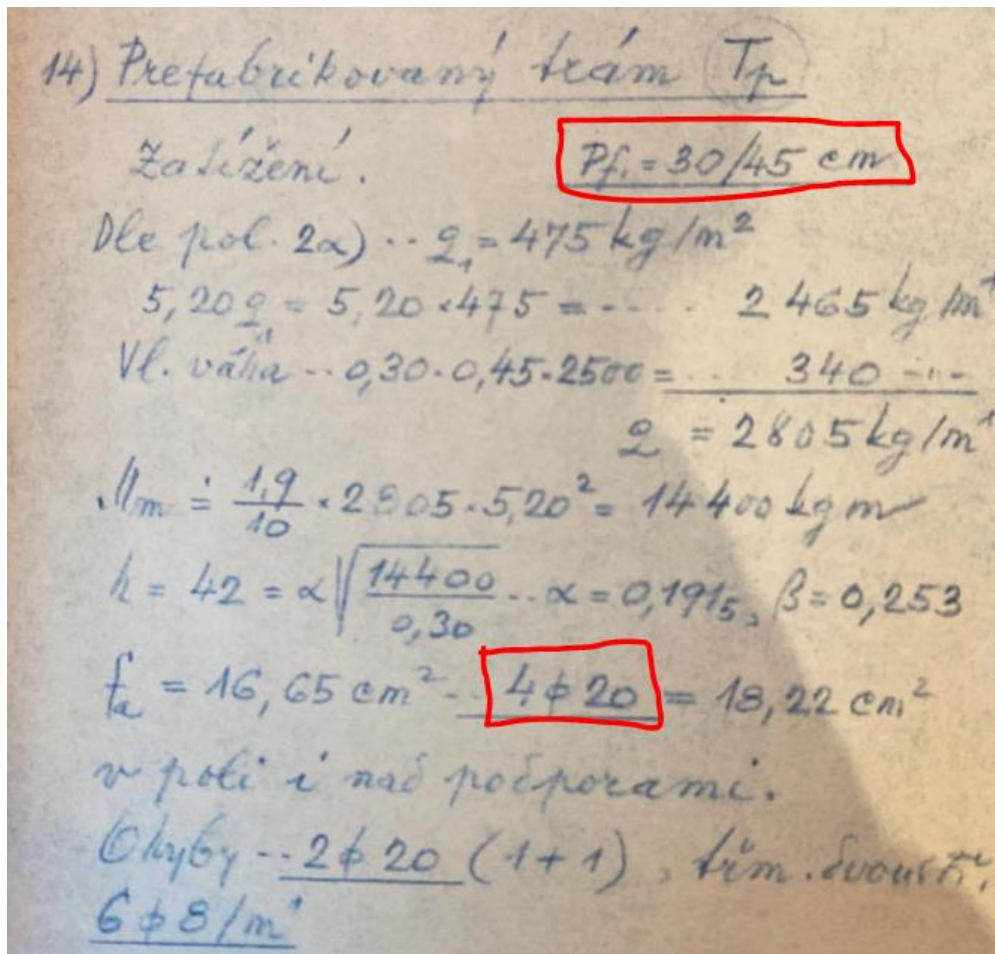 14) Prefabrikovaný trám Tp
Zatížení. Pf. = 30/45 cm
Dle pol. 2α) -- q₁ = 475 kg/m²
5,20 q₁ = 5,20 × 475 = - - - - 2 465 kg/m¹
Vl. váha -- 0,30 · 0,45 · 2500 = .. 340 -"-
q = 2805 kg/m¹
Mm = 1,9/10 · 2805 · 5,20² = 14 400 kgm
h = 42 = α √14400/0,30 .. α = 0,1915, β = 0,253
fa = 16,65 cm² -- 4 ϕ 20 = 18,22 cm²
v poli i nad podporami.
Ohyby -- 2 ϕ 20 (1+1), třm. dvoustř.
6 ϕ 8/m¹